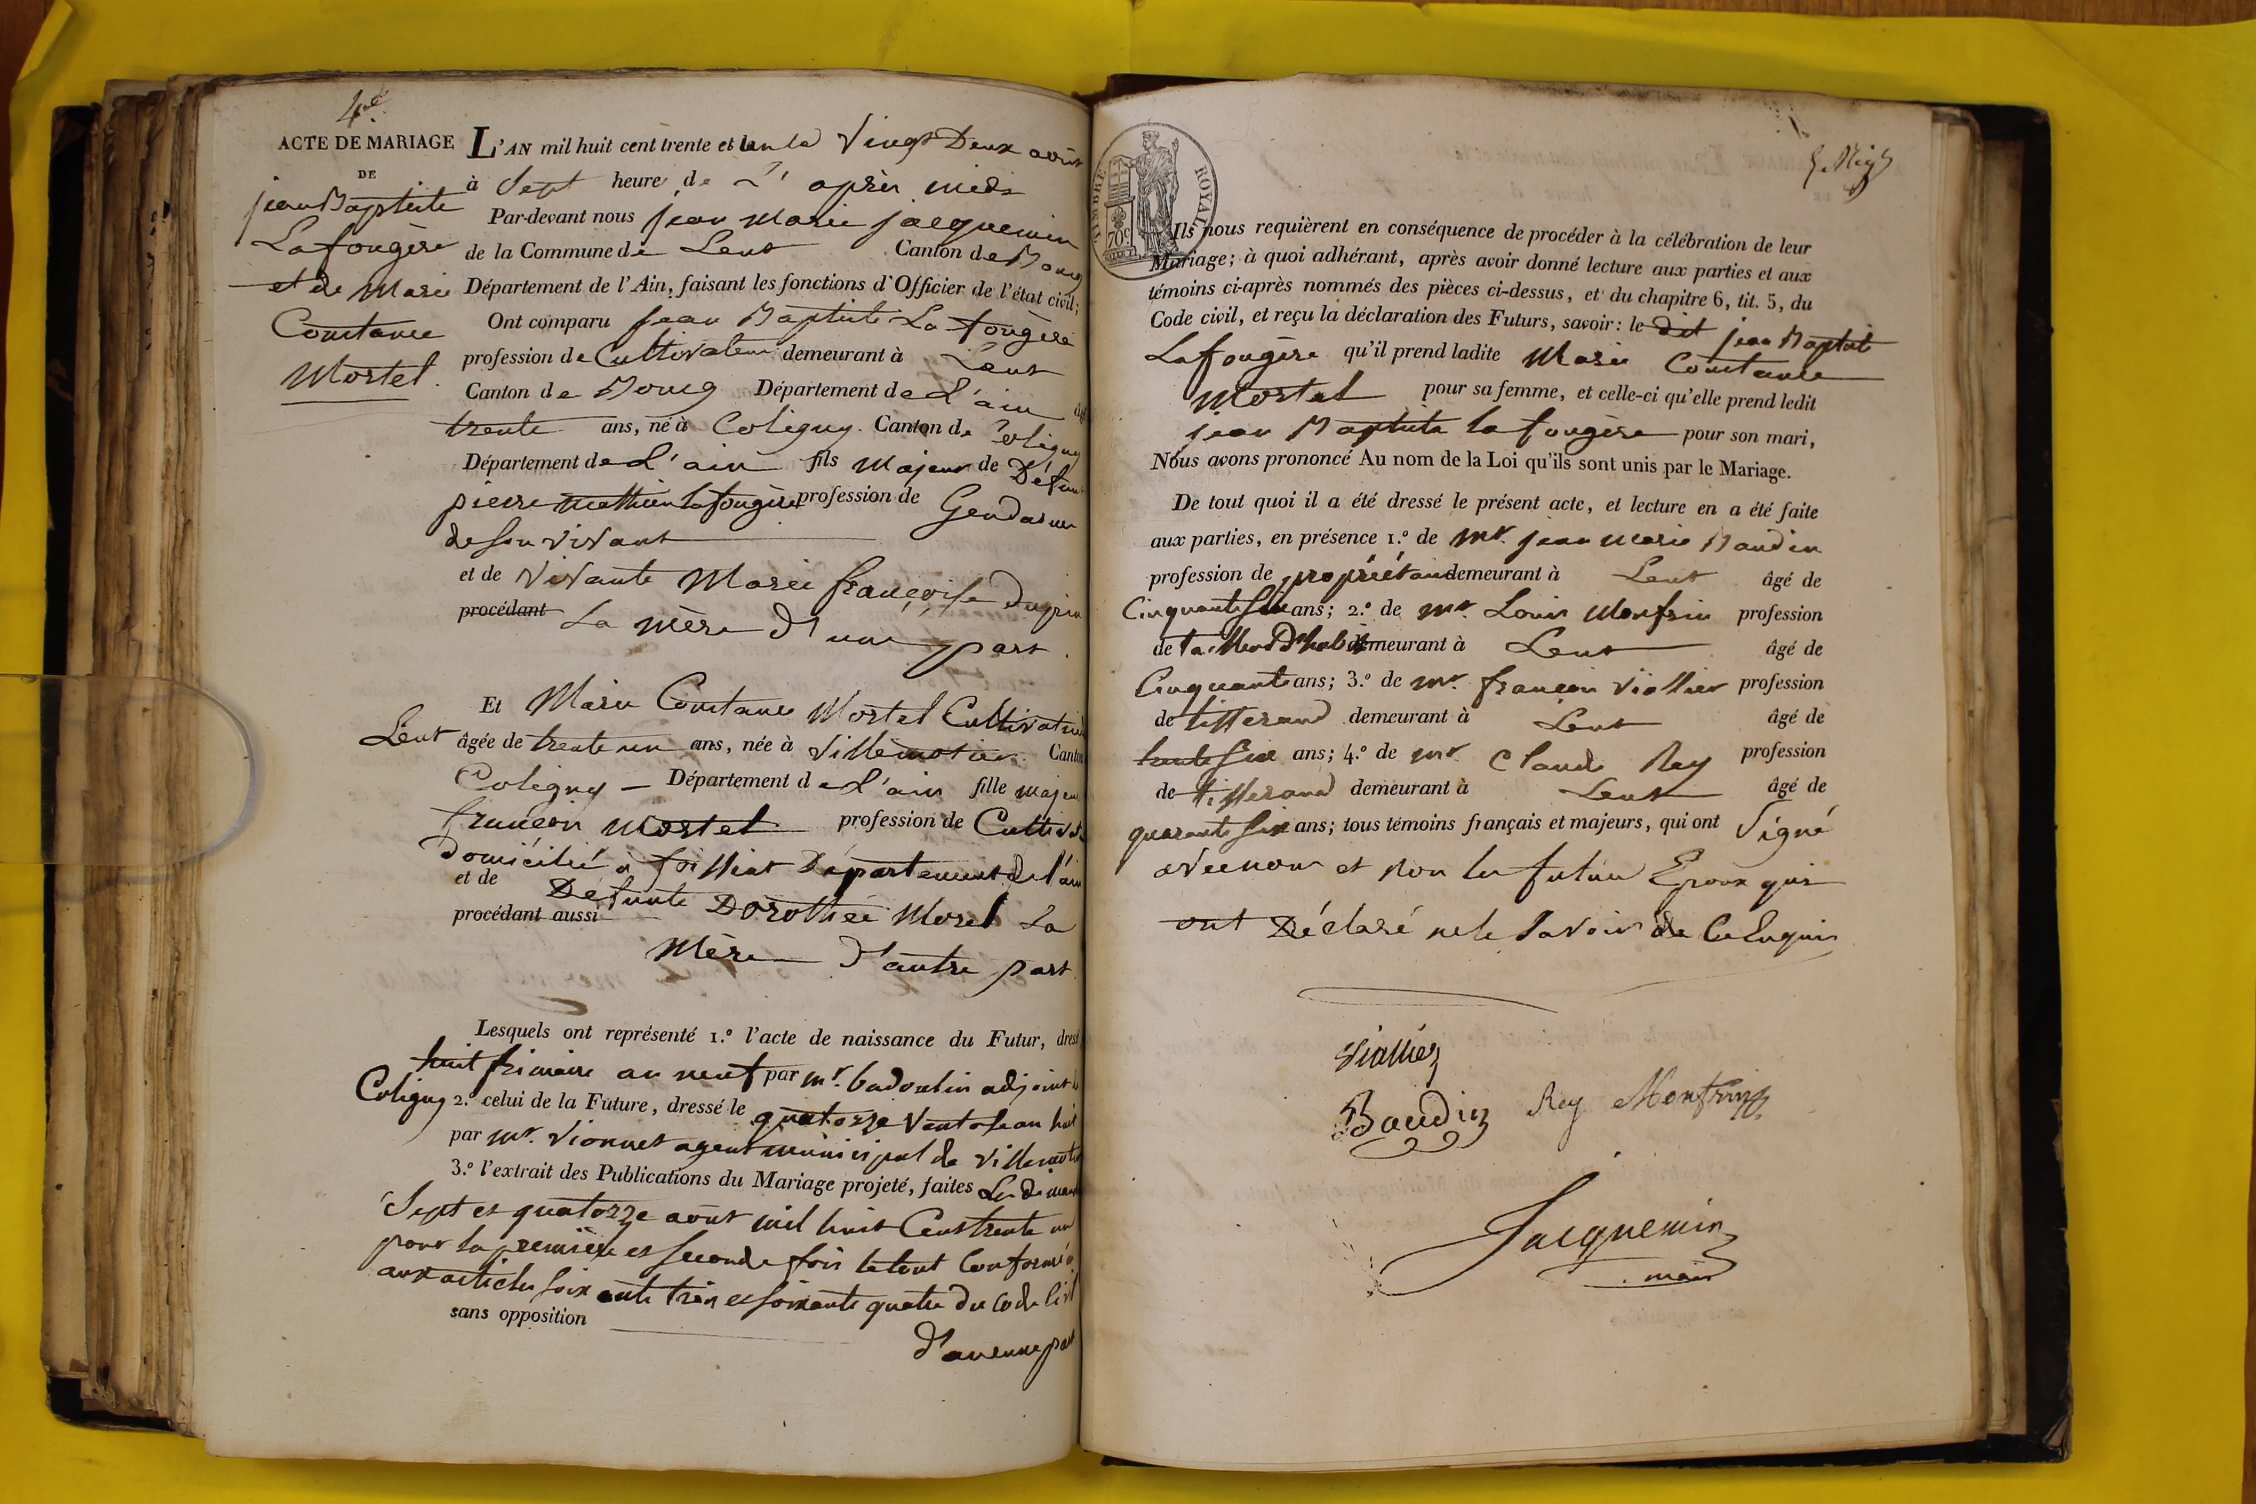 4.e
ACTE DE MARIAGE
DE
jean Baptiste
Lafougère
et de Marie
Constance
Mortel.
L'AN mil huit cent trente et un le Vingt Deux août
à Sept heure de L' après midi
Par-devant nous jean Marie jacquemin
de la Commune de Lent Canton de Bourg
Département de l'Ain, faisant les fonctions d'Officier de l'état civil;
Ont comparu jean Baptiste La fougère
profession de Cultivateur demeurant à Lent
Canton de Bourg Département de L'ain
trente ans, né à Coligny. Canton de Coligny
Département de L'ain fils Majeur de Défunt
pierre mathieu lafougère profession de Gendarme
de son vivant
et de vivante Marie françoise
procédant La Mère D'une part.
Et Marie Constance Mortel Cultivatrice
Lent âgée de trente un ans, née à Villemotier Canton
Coligny — Département de L'ain fille majeu
françois Mortel profession de Cultivat
Domicilié à foissiat Département de l'ain
et de Defunte Dorothée Morel La
procédant aussi
Mère D'autre part
Lesquels ont représenté 1.º l'acte de naissance du Futur, dressé
huit frimaire an neuf par mr. badoulin adjoint de
Coligny 2.º celui de la Future, dressé le quatorze Ventose an huit
par mr. Vionnet agent municipal de Villemotier
3.º l'extrait des Publications du Mariage projeté, faites Les dimanc
Sept et quatorze août mil huit Cent trente un
pour la première et seconde fois le tout Conformé
aux articles soixante trois et soixante quatre du code Civil
sans opposition
D'aucune part
TIMBRE ROYAL
70c
Ils nous requièrent en conséquence de procéder à la célébration de leur
Mariage; à quoi adhérant, après avoir donné lecture aux parties et aux
témoins ci-après nommés des pièces ci-dessus, et du chapitre 6, tit. 5, du
Code civil, et reçu la déclaration des Futurs, savoir: le dit jean Baptiste
Lafougère qu'il prend ladite Marie Constance
Mortel pour sa femme, et celle-ci qu'elle prend ledit
jean Baptiste lafougère pour son mari,
Nous avons prononcé Au nom de la Loi qu'ils sont unis par le Mariage.
De tout quoi il a été dressé le présent acte, et lecture en a été faite
aux parties, en présence 1.º de mr. jean marie Baudin
profession de propriétaire demeurant à Lent âgé de
Cinquante six ans; 2.º de mr. Louis Monfrin profession
de tailleur D'habits demeurant à Lent âgé de
Cinquante ans; 3.º de mr. françois Viallier profession
de tisserand demeurant à Lent âgé de
trente six ans; 4.º de mr. Claude Rey profession
de tisserand demeurant à Lent âgé de
quarante six ans; tous témoins français et majeurs, qui ont Signé
avec nous et non les futurs Epoux qui
ont Déclaré ne le savoir de Ce Enquis
Viallier
Baudin Rey Monfrin
Jacquemin
maire